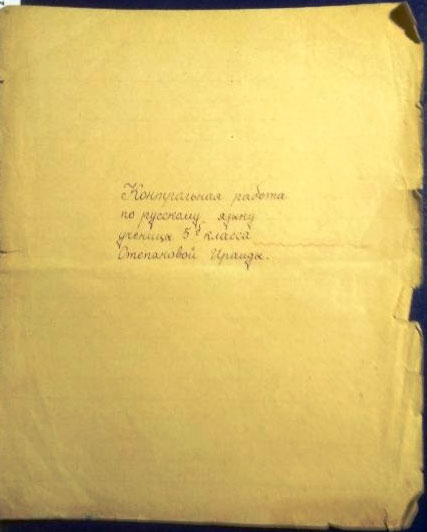 Контрольная работа
по русскому языку
ученицы 5 б класса
Степановой Ираиды.